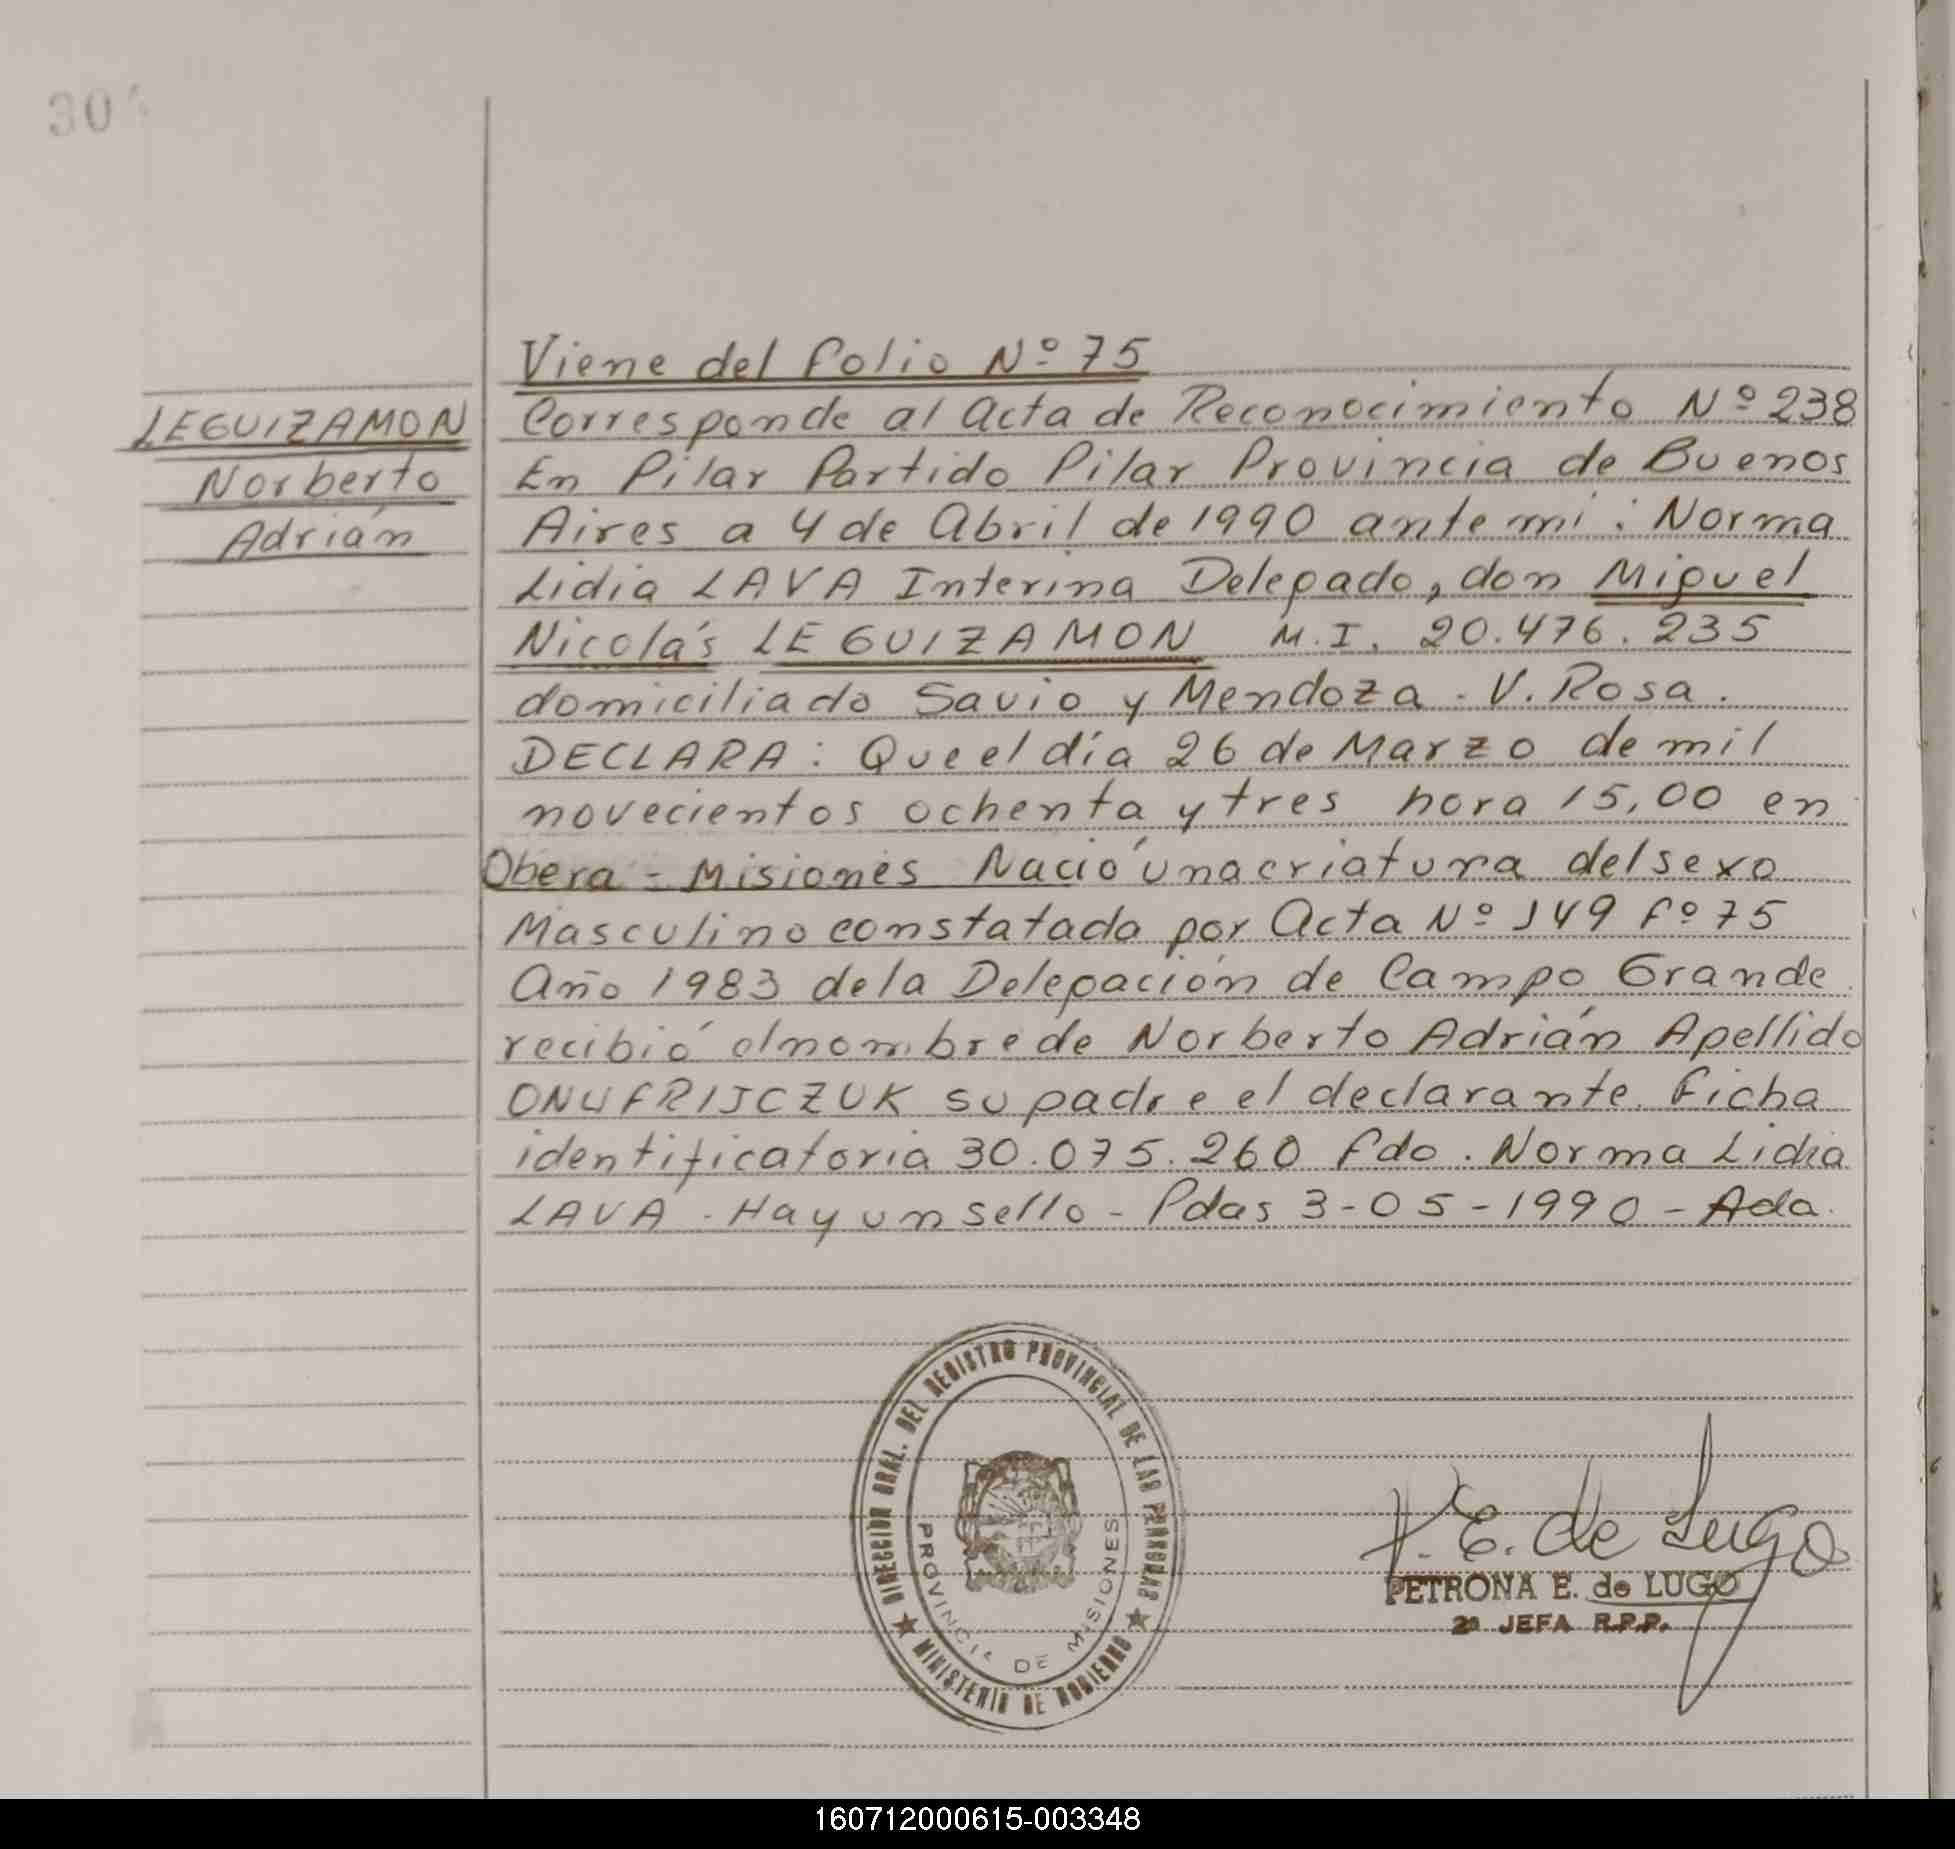 30
Viene del folio Nº 75
LEGUIZAMON
Norberto
Adrián
Corresponde al Acta de Reconocimiento Nº 238
En Pilar Partido Pilar Provincia de Buenos
Aires a 4 de Abril de 1990 ante mi: Norma
Lidia LAVA Interina Delegado, don Miguel
Nicolás LEGUIZAMON M.I. 20.476.235
domiciliado Savio y Mendoza - V. Rosa.
DECLARA: Que el día 26 de Marzo de mil
novecientos ochenta y tres hora 15,00 en
Obera - Misiones Nació una criatura del sexo
Masculino constatada por Acta Nº 149 fº 75
Año 1983 de la Delegación de Campo Grande
recibió el nombre de Norberto Adrián Apellido
ONUFRIJCZUK su padre el declarante. Ficha
identificatoria 30.075.260 fdo. Norma Lidia
LAVA - Hay un sello - Pdas 3-05-1990 - Ada.
DIRECCION GRAL. DEL REGISTRO PROVINCIAL DE LAS PERSONAS
PROVINCIA DE MISIONES
MINISTERIO DE GOBIERNO
P. E. de Lugo
PETRONA E. de LUGO
2ª JEFA R.P.P.
160712000615-003348